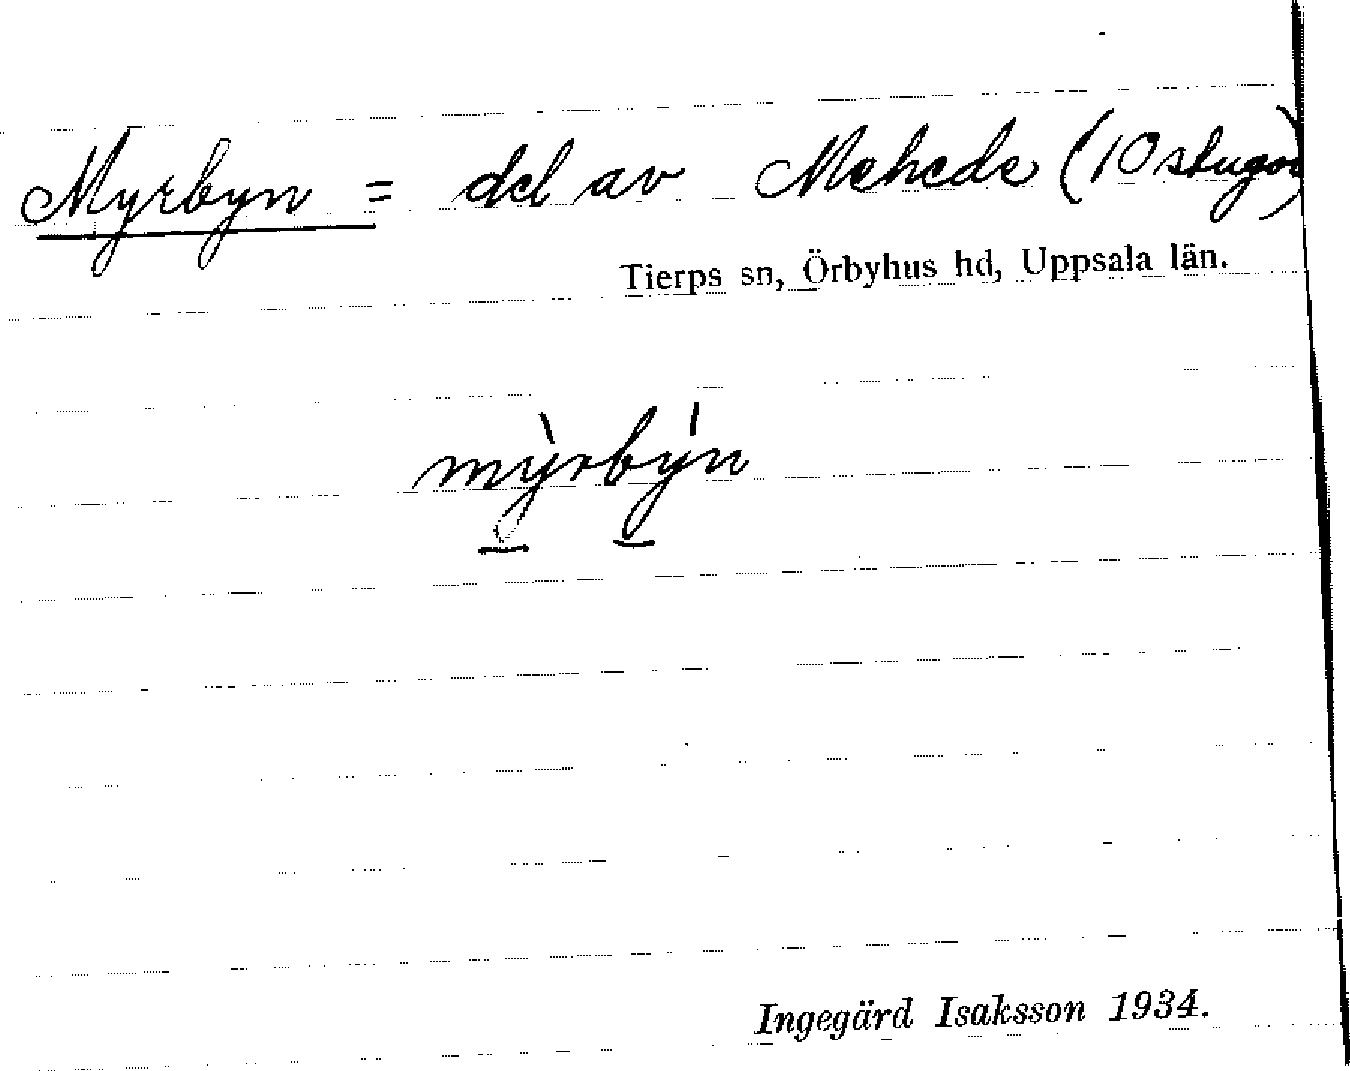 Myrbyn = del av Mehede (10 stugor)
Tierps sn, Örbyhus hd, Uppsala län.
mỳrbýn
Ingegärd Isaksson 1934.